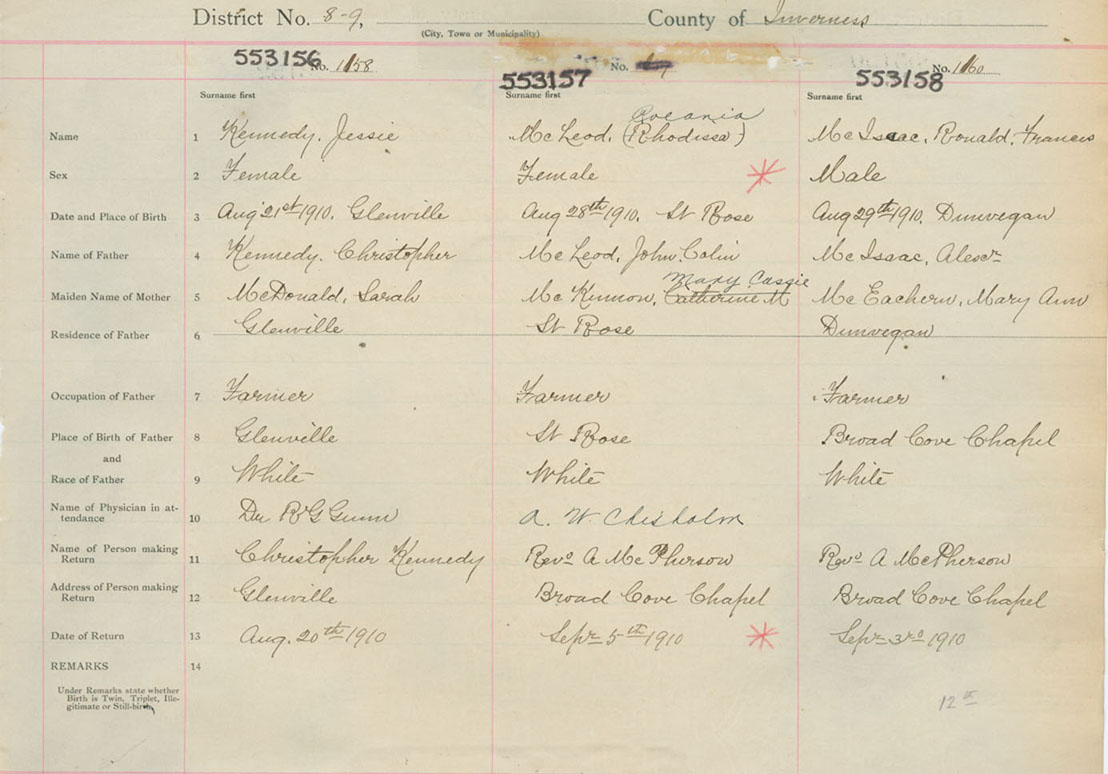 District No. 8-9, County of Inverness
(City, Town or Municipality)
553156 No. 1158 553157 No. 553158 No. 1160
Surname first Surname first Surname first
Roeania
Name 1 Kennedy, Jessie McLeod, (Rhodissa) McIsaac, Ronald, Francis
Sex 2 Female Female Male
Date and Place of Birth 3 Aug 21st 1910. Glenville Aug 28th 1910. St Rose Aug 29th 1910, Dunvegan
Name of Father 4 Kennedy, Christopher McLeod, John, Colin McIsaac, Alexr
Mary Cassie
Maiden Name of Mother 5 McDonald, Sarah McKinnon, Catherine M McEachern, Mary Ann
Residence of Father 6 Glenville St Rose Dunvegan
Occupation of Father 7 Farmer Farmer Farmer
Place of Birth of Father 8 Glenville St Rose Broad Cove Chapel
and
Race of Father 9 White White White
Name of Physician in at-
tendance 10 Dr R G Gunn A. W. Chisholm
Name of Person making
Return 11 Christopher Kennedy Revd A McPherson Revd A McPherson
Address of Person making
Return 12 Glenville Broad Cove Chapel Broad Cove Chapel
Date of Return 13 Aug. 20th 1910 Sepr 5th 1910 Sepr 3rd 1910
REMARKS 14
Under Remarks state whether
Birth is Twin, Triplet, Ille-
gitimate or Still-birth